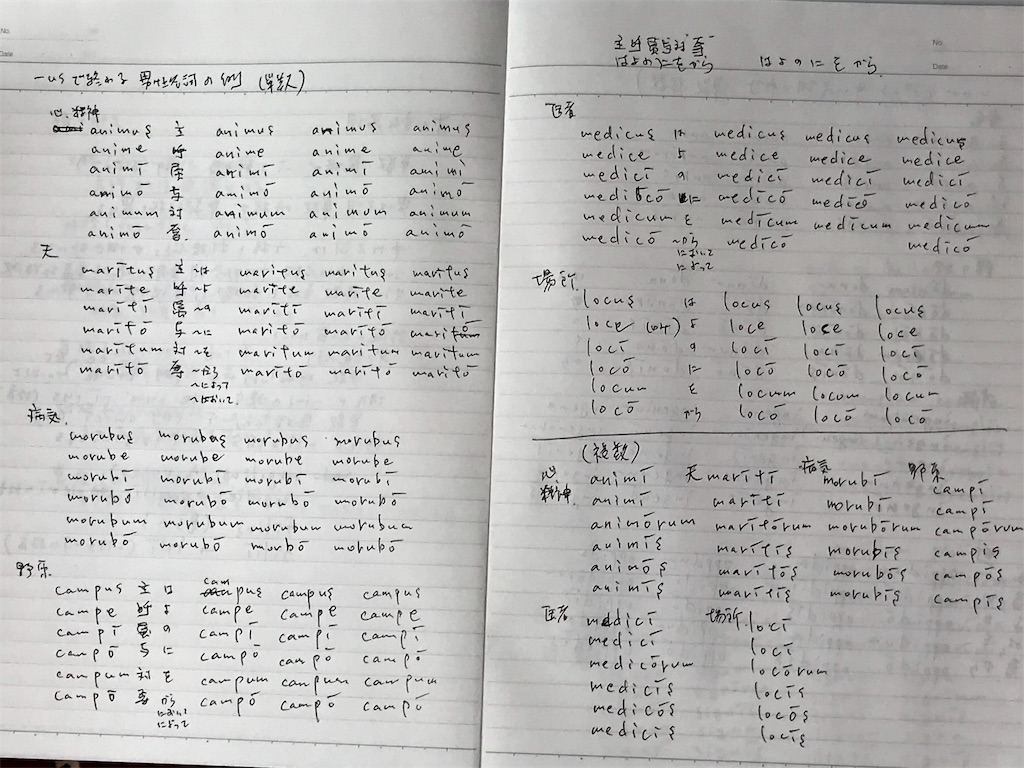 -usで終わる 男性名詞の例 (単数)
心、精神
animus 主 animus animus animus
anime 呼 anime anime anime
animī 属 animī animī animī
animō 与 animō animō animō
animum 対 animum animum animum
animō 奪 animō animō animō
夫
marītus 主 ~は marītus marītus marītus
marīte 呼 ~よ marīte marīte marīte
marītī 属 ~の marītī marītī marītī
marītō 与 ~に marītō marītō marītō
marītum 対 ~を marītum marītum marītum
marītō 奪 ~から marītō marītō marītō
~によって
~において
病気
morubus morubus morubus morubus
morube morube morube morube
morubī morubī morubī morubī
morubō morubō morubō morubō
morubum morubum morubum morubum
morubō morubō morubō morubō
野原
campus 主 は campus campus campus
campe 呼 よ campe campe campe
campī 属 の campī campī campī
campō 与 に campō campō campō
campum 対 を campum campum campum
campō 奪 から campō campō campō
において
によって
No.
Date
主呼属与対奪
はよのにをから はよのにをから
医者
medicus は medicus medicus medicus
medice よ medice medice medice
medicī の medicī medicī medicī
medicō に medicō medicō medicō
medicum を medicum medicum medicum
medicō ~から medicō medicō
において
によって
場所
locus は locus locus locus
loce (oh) よ loce loce loce
locī の locī locī locī
locō に locō locō locō
locum を locum locum locum
locō から locō locō locō
(複数)
心 精神 animī 夫 marītī 病気 morubī 野原 campī
animī marītī morubī campī
animōrum marītōrum morubōrum campōrum
animīs marītīs morubīs campīs
animōs marītōs morubōs campōs
animīs marītīs morubīs campīs
医者 medicī 場所 locī
medicī locī
medicōrum locōrum
medicīs locīs
medicōs locōs
medicīs locīs